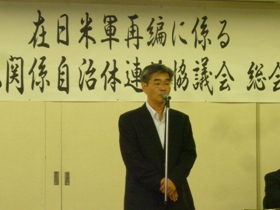 在日米軍再編に係る
関係自治体連 協議会 総会